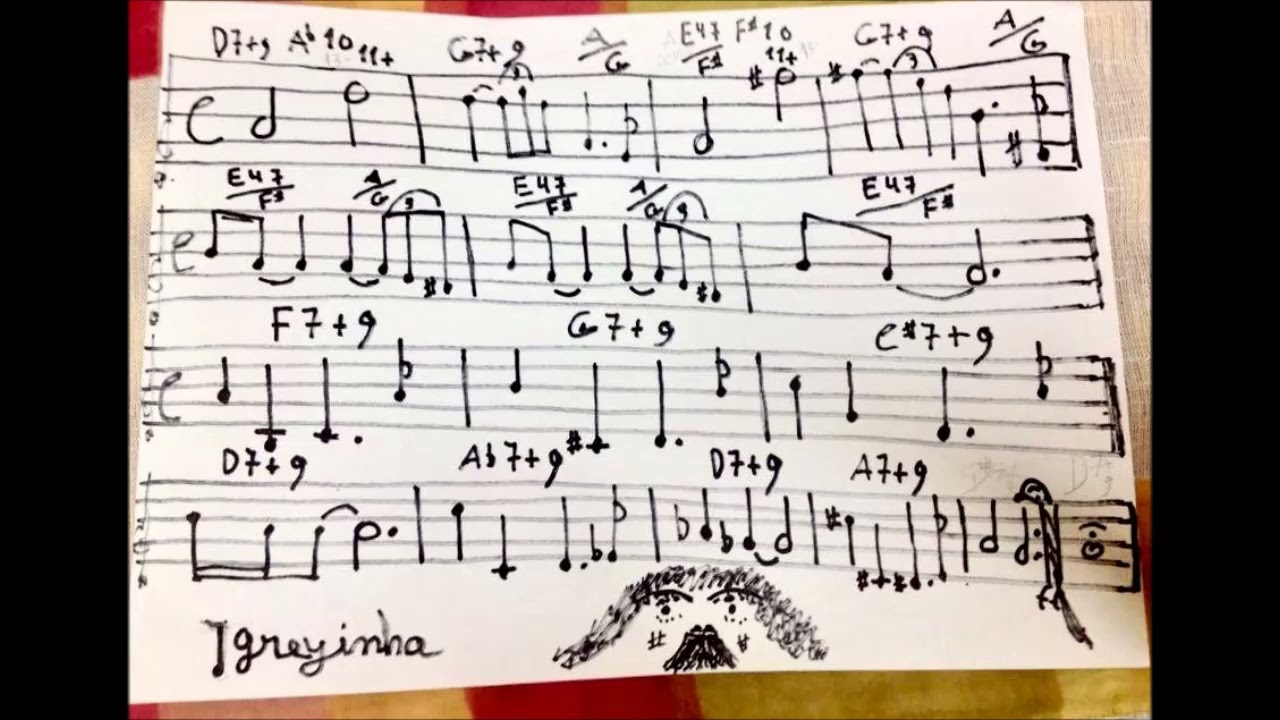 D7+9 Ab 10 11+ G7+9 3 A/G E47/F# F#10 11+ G7+9 3 A/G
E47/F# A/G 3 E47/F# A/G E47/F#
F7+9 G7+9 C#7+9
D7+9 Ab7+9 D7+9 A7+9
Igreyinha